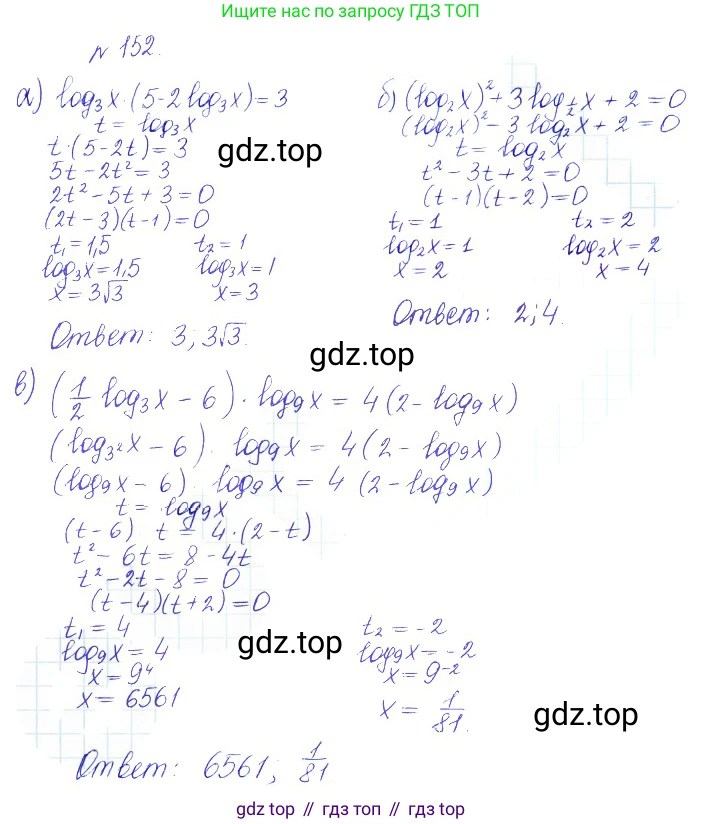 Ищите нас по запросу ГДЗ ТОП
№ 152.
а) log₃x·(5-2log₃x)=3
t = log₃x
t·(5-2t)=3
5t-2t²=3
2t²-5t+3=0
(2t-3)(t-1)=0
t₁=1,5 t₂=1
log₃x=1,5 log₃x=1
x=3√3 x=3
Ответ: 3; 3√3.
б) (log₂x)²+3log_{1/2}x+2=0
(log₂x)²-3log₂x+2=0
t=log₂x
t²-3t+2=0
(t-1)(t-2)=0
t₁=1 t₂=2
log₂x=1 log₂x=2
x=2 x=4
Ответ: 2; 4.
gdz.top
gdz.top
в) (1/2 log₃x - 6)·log₉x = 4(2-log₉x)
(log_{3²}x - 6)·log₉x = 4(2-log₉x)
(log₉x - 6)·log₉x = 4(2-log₉x)
t = log₉x
(t-6) t = 4·(2-t)
t²-6t=8-4t
t²-2t-8=0
(t-4)(t+2)=0
t₁=4 t₂=-2
log₉x=4 log₉x=-2
x=9⁴ x=9⁻²
x=6561 x=1/81.
gdz.top
gdz.top
Ответ: 6561; 1/81
gdz top // гдз топ // gdz top // гдз топ